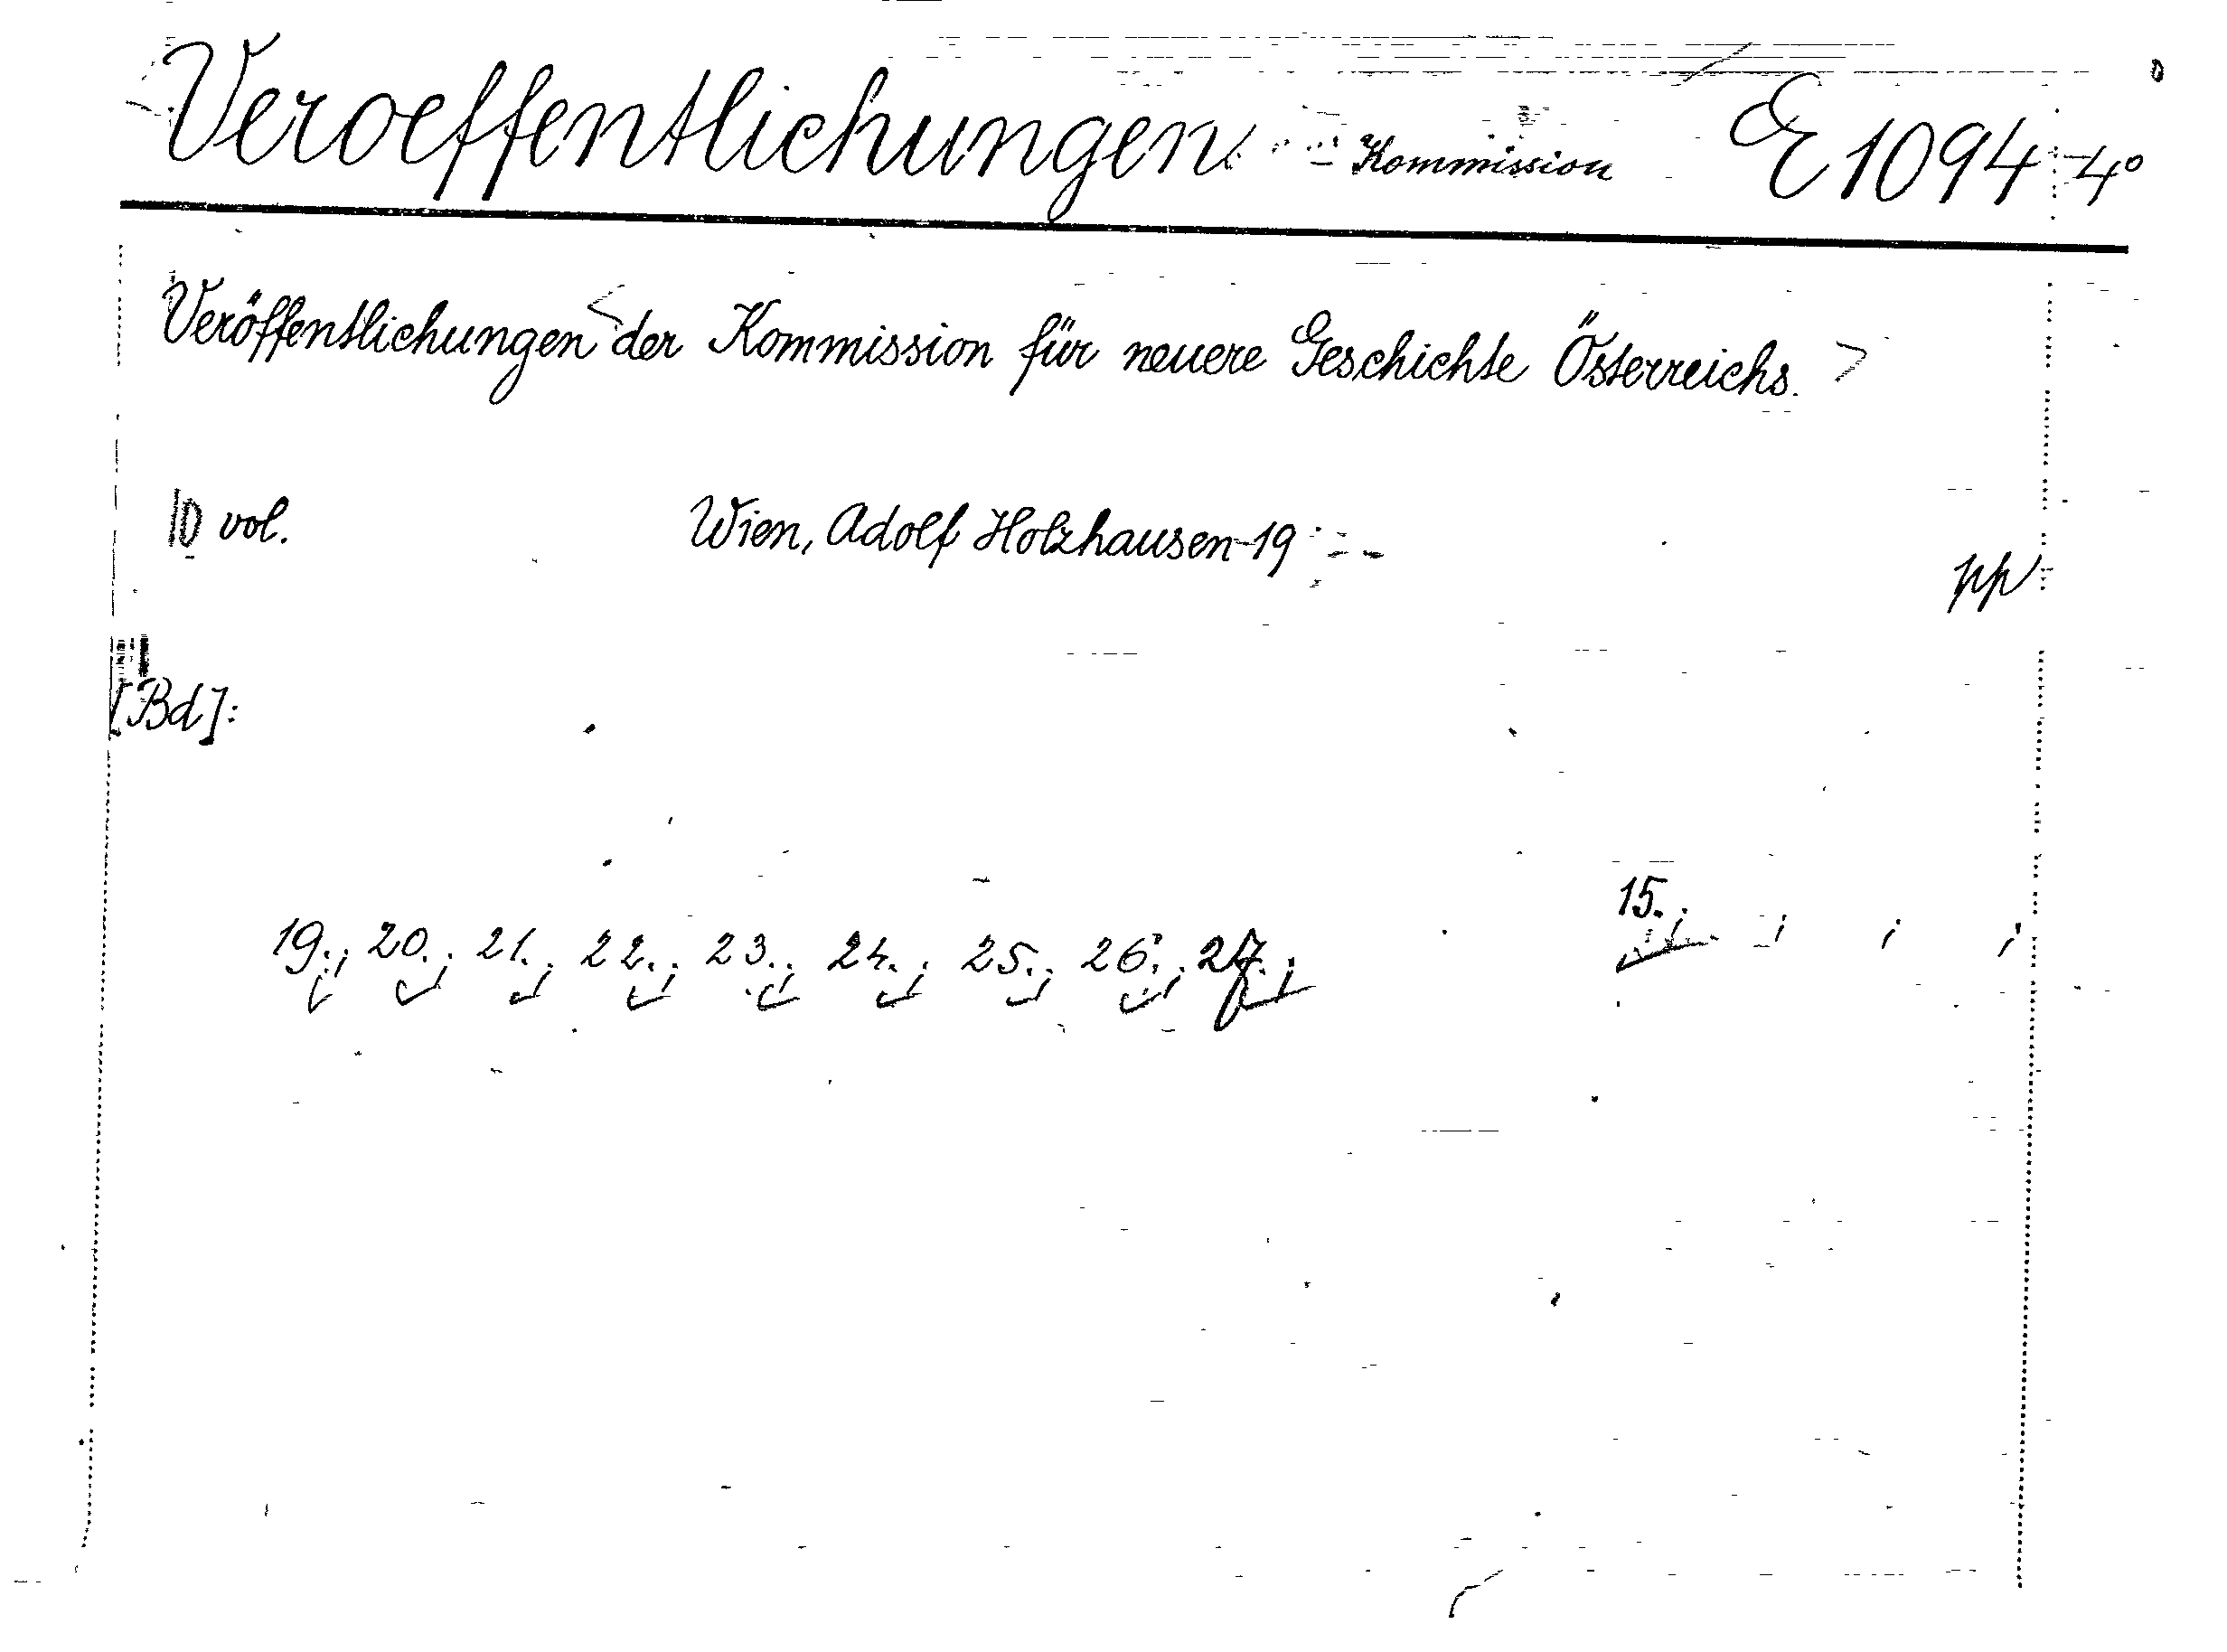 Veroeffentlichungen - Kommission E 1094-4°
Veröffentlichungen <der Kommission für neuere Geschichte Österreichs.>
10 vol. Wien, Adolf Holzhausen 19 - -
pp
[Bd]:
15.;
19.; 20.; 21.; 22.; 23.; 24.; 25.; 26.; 27.; ; ; ;